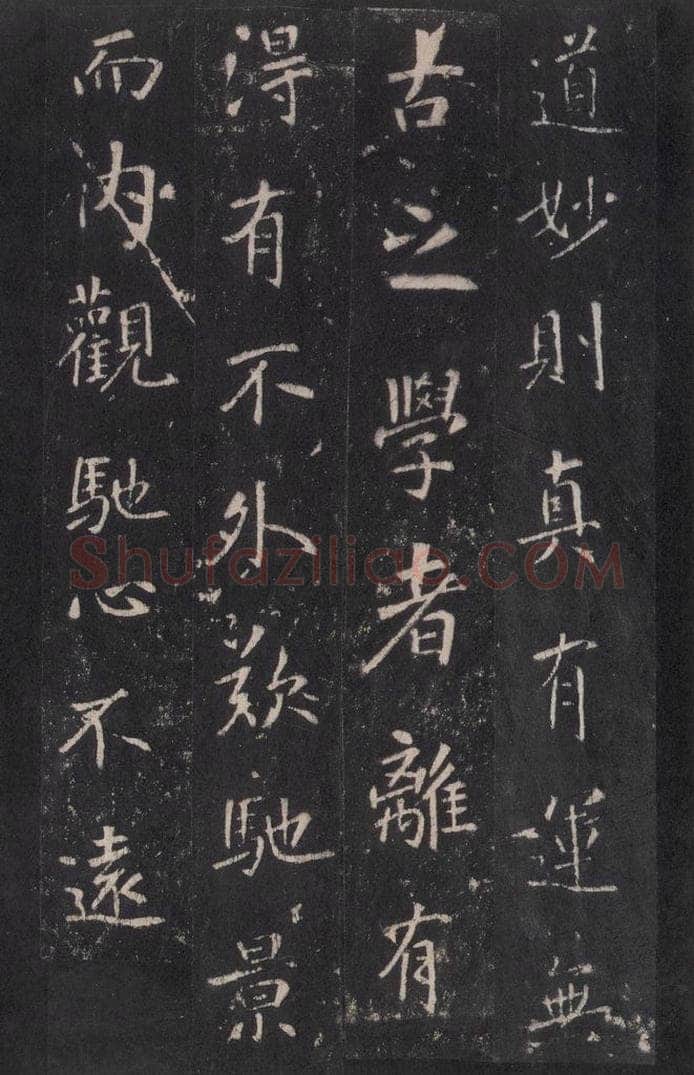 道妙則真有運無
古之學者離有
得有不外歎馳景
而內觀馳心不遠
Shufaziliao.COM